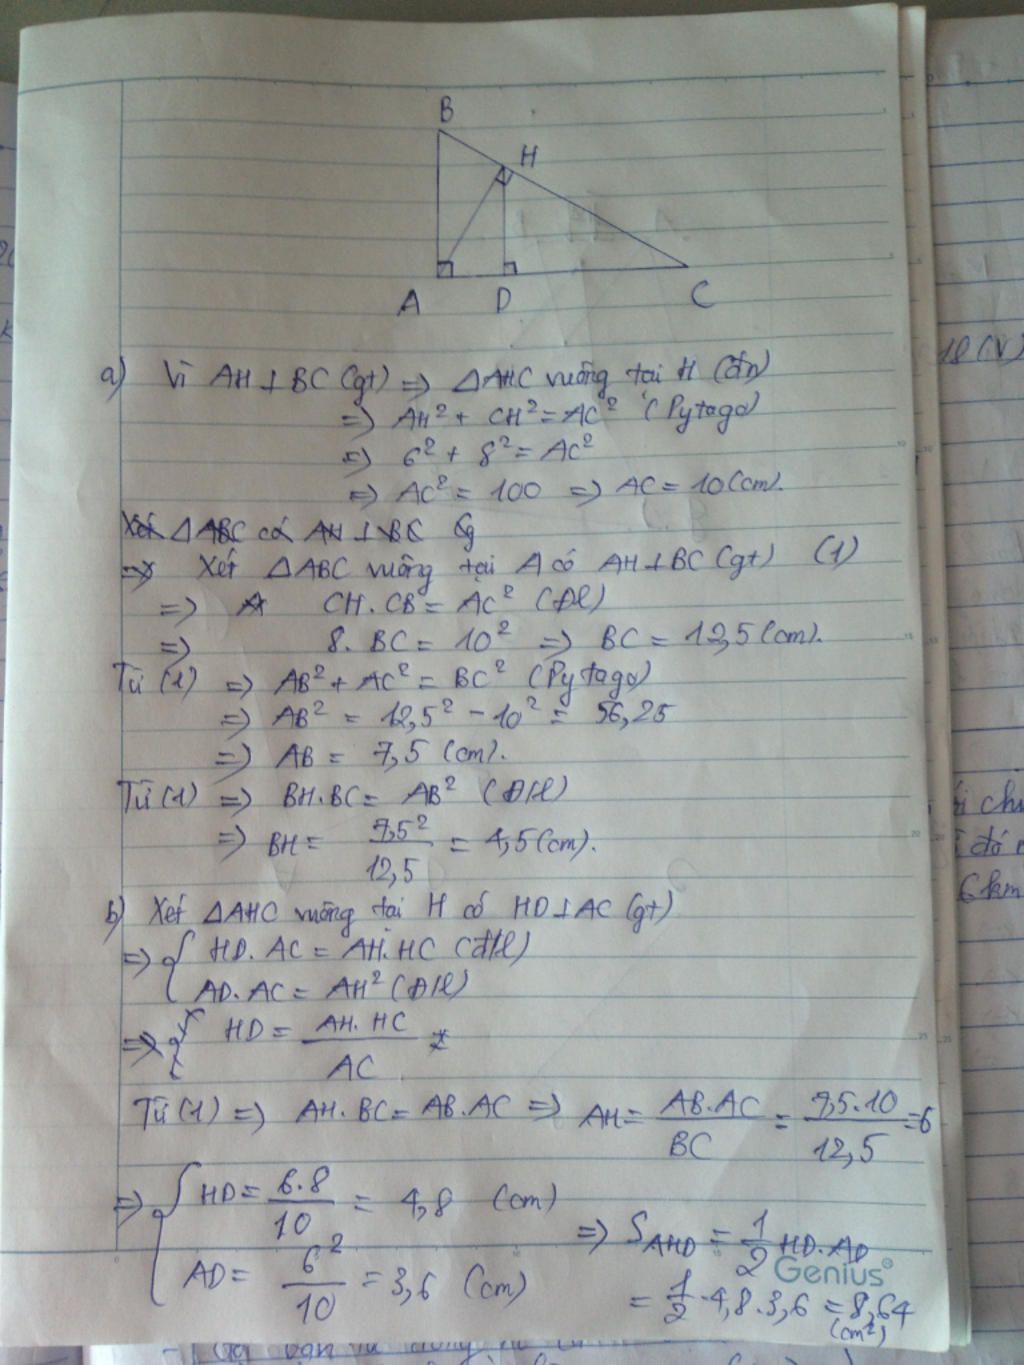 B
H
A D C
a) Vì AH⊥BC (gt) => △AHC vuông tại H (đn)
=> AH² + CH² = AC² (Pytago)
=> 6² + 8² = AC²
=> AC² = 100 => AC = 10 (cm).
Xét △ABC có AH ⊥ BC (g
=> Xét △ABC vuông tại A có AH⊥BC (gt) (1)
=> A CH.CB = AC² (Đl)
=> 8. BC = 10² => BC = 12,5 (cm).
Từ (1) => AB² + AC² = BC² (Pytago)
=> AB² = 12,5² - 10² = 56,25
=> AB = 7,5 (cm).
Từ (1) => BH.BC = AB² (Đlí)
=> BH = 7,5²/12,5 = 4,5 (cm).
b) Xét △AHC vuông tại H có HD⊥AC (gt)
=> { HD. AC = AH. HC (đlí)
AD. AC = AH² (Đlí)
=> { HD = AH. HC/AC =
Từ (1) => AH. BC = AB. AC => AH = AB.AC/BC = 7,5.10/12,5 = 6
=> { HD = 6.8/10 = 4,8 (cm)
AD = 6²/10 = 3,6 (cm)
=> S_AHD = 1/2 HD. AD
= 1/2 . 4,8 . 3,6 = 8,64
(cm²)
Genius
18 (V)
đó
6 km